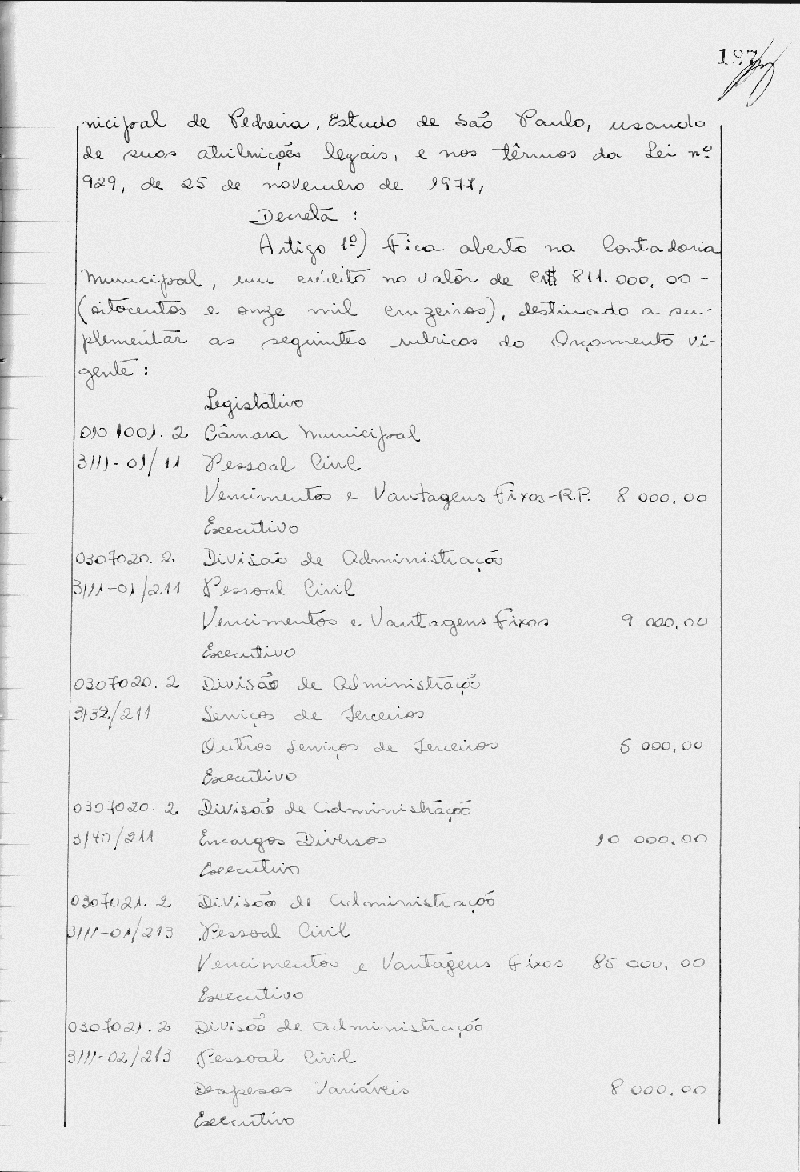 197
nicipal de Pedreira, Estado de São Paulo, usando
de suas atribuições legais, e nos têrmos da Lei nº
929, de 25 de novembro de 1977,
Decreta :
Artigo 1º) Fica aberto na Contadoria
Municipal, um crédito no valor de CR$ 811.000,00 -
(oitocentos e onze mil cruzeiros), destinado a su-
plementar as seguintes rubricas do Orçamento vi-
gente :
Legislativo
0101001.2 Câmara Municipal
3111-01/11 Pessoal Civil
Vencimentos e Vantagens Fixos-R.P. 8 000,00
Executivo
0307020.2 Divisão de Administração
3111-01/211 Pessoal Civil
Vencimentos e Vantagens Fixos 9 000,00
Executivo
0307020.2 Divisão de Administração
3132/211 Serviços de Terceiros
Outros Serviços de Terceiros 5 000,00
Executivo
0307020.2 Divisão de Administração
3140/211 Encargos Diversos 10 000,00
Executivo
0307021.2 Divisão de Administração
3111-01/213 Pessoal Civil
Vencimentos e Vantagens Fixos 85 000,00
Executivo
0307021.2 Divisão de Administração
3111-02/213 Pessoal Civil
Despesas Variáveis 8 000,00
Executivo